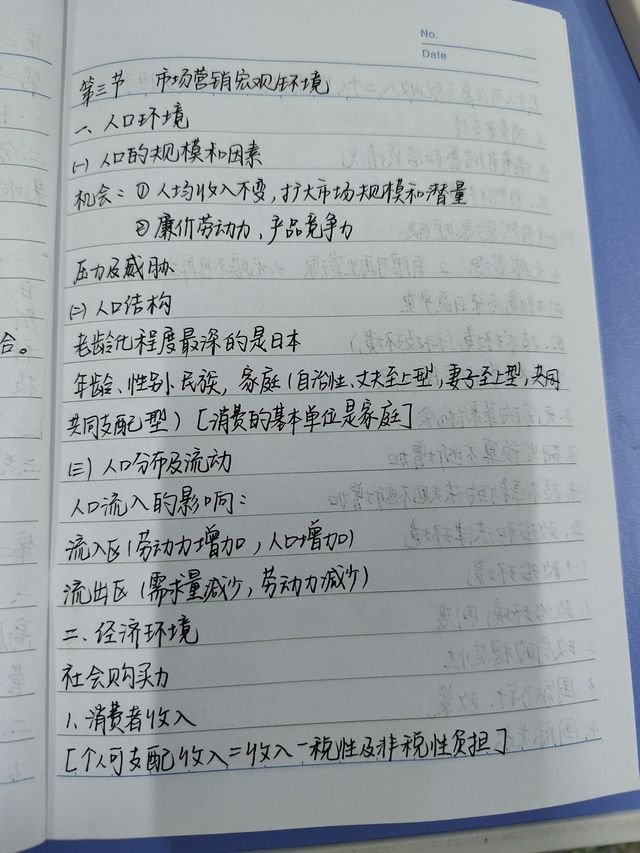 No.
Date
第三节 市场营销宏观环境
一、人口环境
(一) 人口的规模和因素
机会：① 人均收入不变，扩大市场规模和潜量
② 廉价劳动力，产品竞争力
压力及威胁
(二) 人口结构
老龄化程度最深的是日本
年龄、性别、民族，家庭（自治性、丈夫至上型，妻子至上型，共同
共同支配型）[消费的基本单位是家庭]
(三) 人口分布及流动
人口流入的影响：
流入区（劳动力增加，人口增加）
流出区（需求量减少，劳动力减少）
二、经济环境
社会购买力
1、消费者收入
[个人可支配收入=收入-税性及非税性负担]
合。